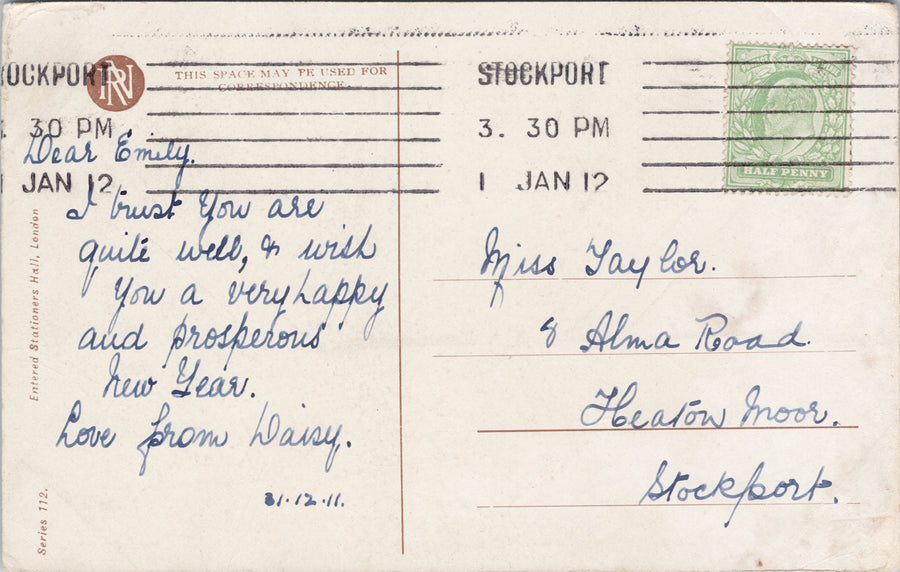 STOCKPORT
3. 30 PM
1 JAN 12
OCKPORT
30 PM
JAN 12
RN
THIS SPACE MAY BE USED FOR
CORRESPONDENCE.
HALF PENNY
Dear Emily.
I trust you are
quite well, & wish
you a very happy
and prosperous
New Year.
Love from Daisy.
31.12.11.
Miss Taylor.
8 Alma Road.
Heaton Moor.
Stockport.
Entered Stationers Hall, London
Series 112.